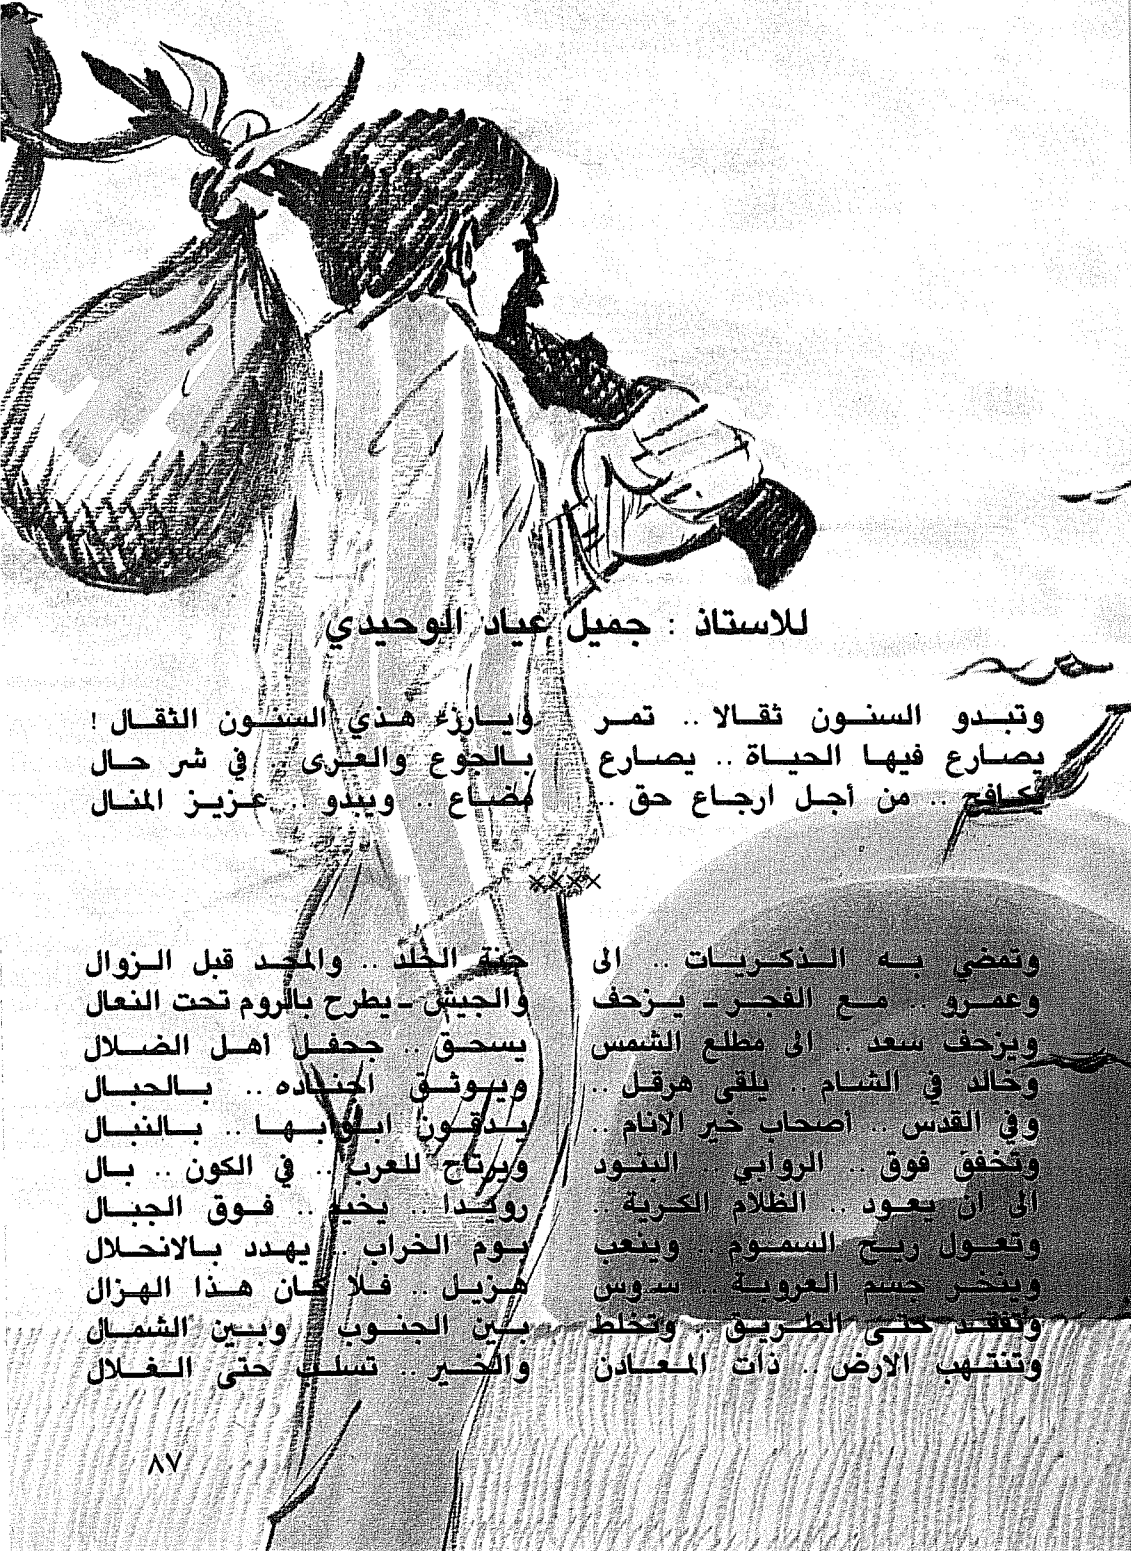 للاستاذ : جميل عياد الوحيدي
وتبدو السنون ثقالا .. تمر ويارزء هذي السنون الثقال !
يصارع فيها الحياة .. يصارع بالجوع والعرى .. في شر حال
يكافح .. من أجل ارجاع حق .. مضاع .. ويبدو .. عزيز المنال
××××
وتمضي به الذكريات .. الى جنة الخلد .. والمجد قبل الزوال
وعمرو .. مع الفجر ـ يزحف والجيش ـ يطرح بالروم تحت النعال
ويزحف سعد .. الى مطلع الشمس يسحق .. جحفل أهل الضلال
وخالد في الشام .. يلقى هرقل .. ويوثق اجناده .. بالحبال
وفي القدس .. أصحاب خير الانام .. يدقون ابوابها .. بالنبال
وتخفق فوق .. الروابي .. البنود ويرتاح للعرب .. في الكون .. بال
الى ان يعود .. الظلام الكرية .. رويدا .. يخيم .. فوق الجبال
وتعول ريح السموم .. وينعب بوم الخراب .. يهدد بالانحلال
وينخر جسم العروبة .. سوس هزيل .. فلا كان هذا الهزال
وتفقد حتى الطريق .. وتخلط بين الجنوب وبين الشمال
وتنتهب الارض .. ذات المعادن والخير .. تسلب حتى الغلال
٨٧